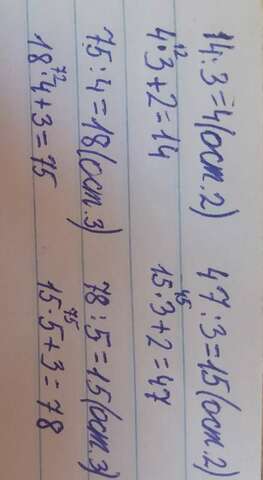 14:3=4(ост.2) 47:3=15(ост.2)
12 45
4·3+2=14 15·3+2=47
75:4=18(ост.3) 78:5=15(ост.3)
72 75
18·4+3=75 15·5+3=78